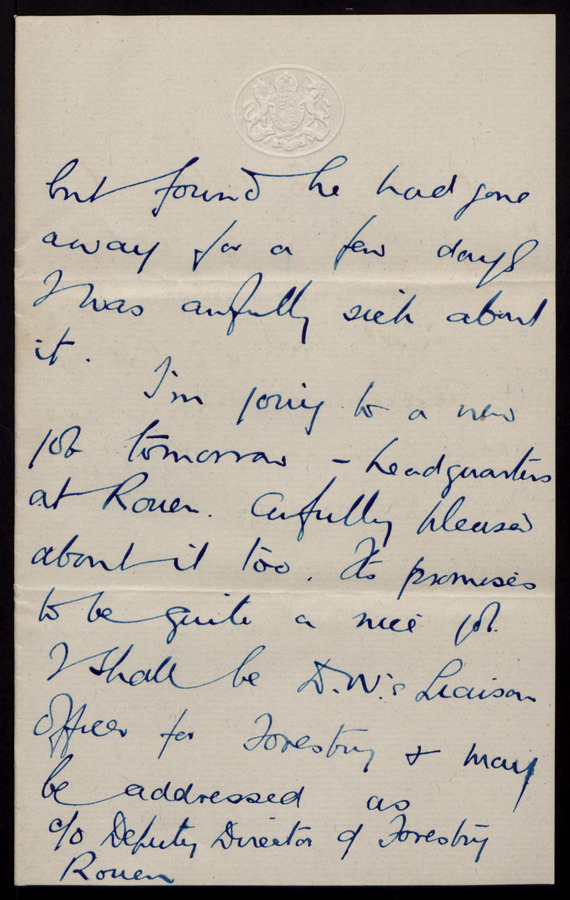 but found he had gone
away for a few days
I was awfully sick about
it.
I'm going to a new
job tomorrow - headquarters
at Rouen. Awfully pleased
about it too. Its promises
to be quite a nice job.
I shall be D.W.'s Liaison
Officer for Forestry & may
be addressed as
c/o Deputy Director of Forestry
Rouen